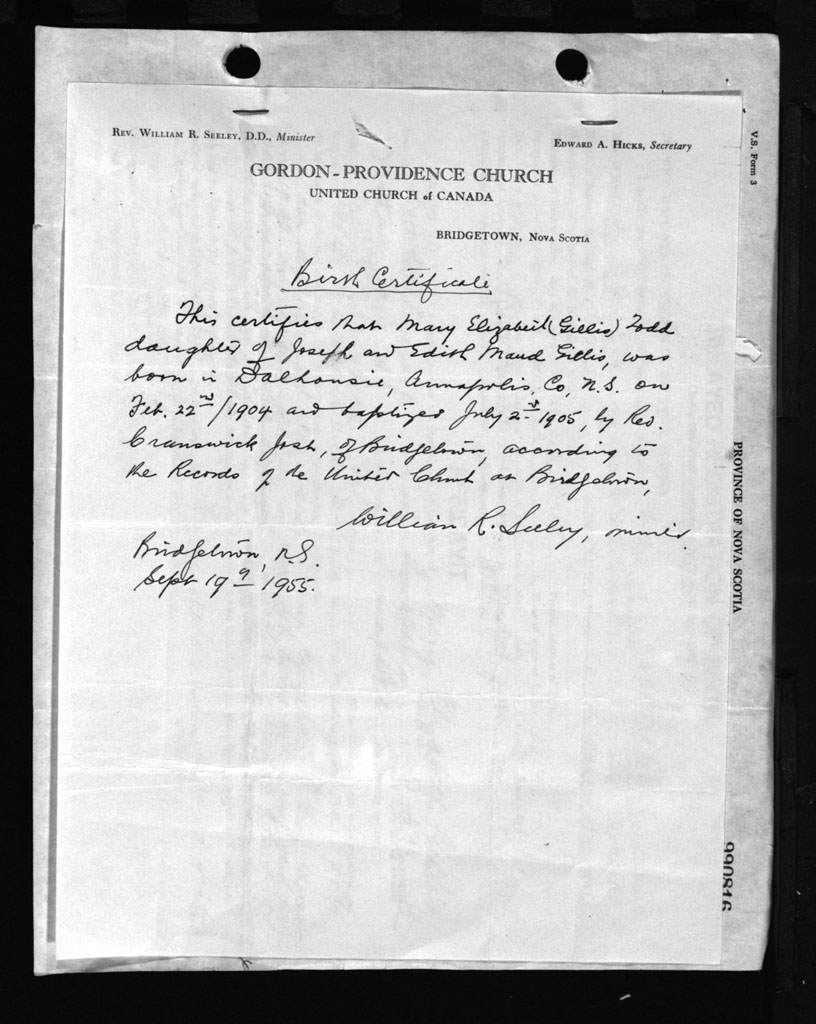 REV. WILLIAM R. SEELEY, D.D., Minister
EDWARD A. HICKS, Secretary
GORDON-PROVIDENCE CHURCH
UNITED CHURCH of CANADA
BRIDGETOWN, NOVA SCOTIA
Birth Certificate
This certifies that Mary Elizabeth (Gillis) Todd
daughter of Joseph and Edith Maud Gillis, was
born in Dalhousie, Annapolis, Co, N.S. on
Feb. 22nd/1904 and baptized July 2nd 1905, by Rev.
Cranswick Jost, of Bridgetown, according to
the Records of the United Church at Bridgetown,
William R. Seeley, minister.
Bridgetown, N.S.
Sept 19th 1955.
V.S. Form 3
PROVINCE OF NOVA SCOTIA
990816